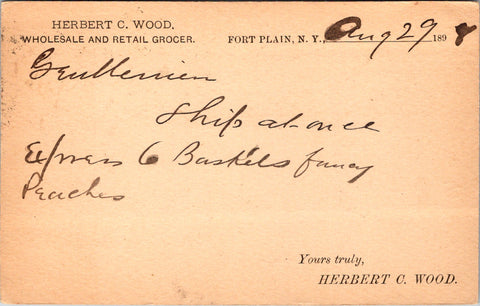 HERBERT C. WOOD,
WHOLESALE AND RETAIL GROCER.
FORT PLAIN, N. Y., Aug 29 1898
Gentlemen
Ship at once
Express 6 Baskets fancy
Peaches
Yours truly,
HERBERT C. WOOD.